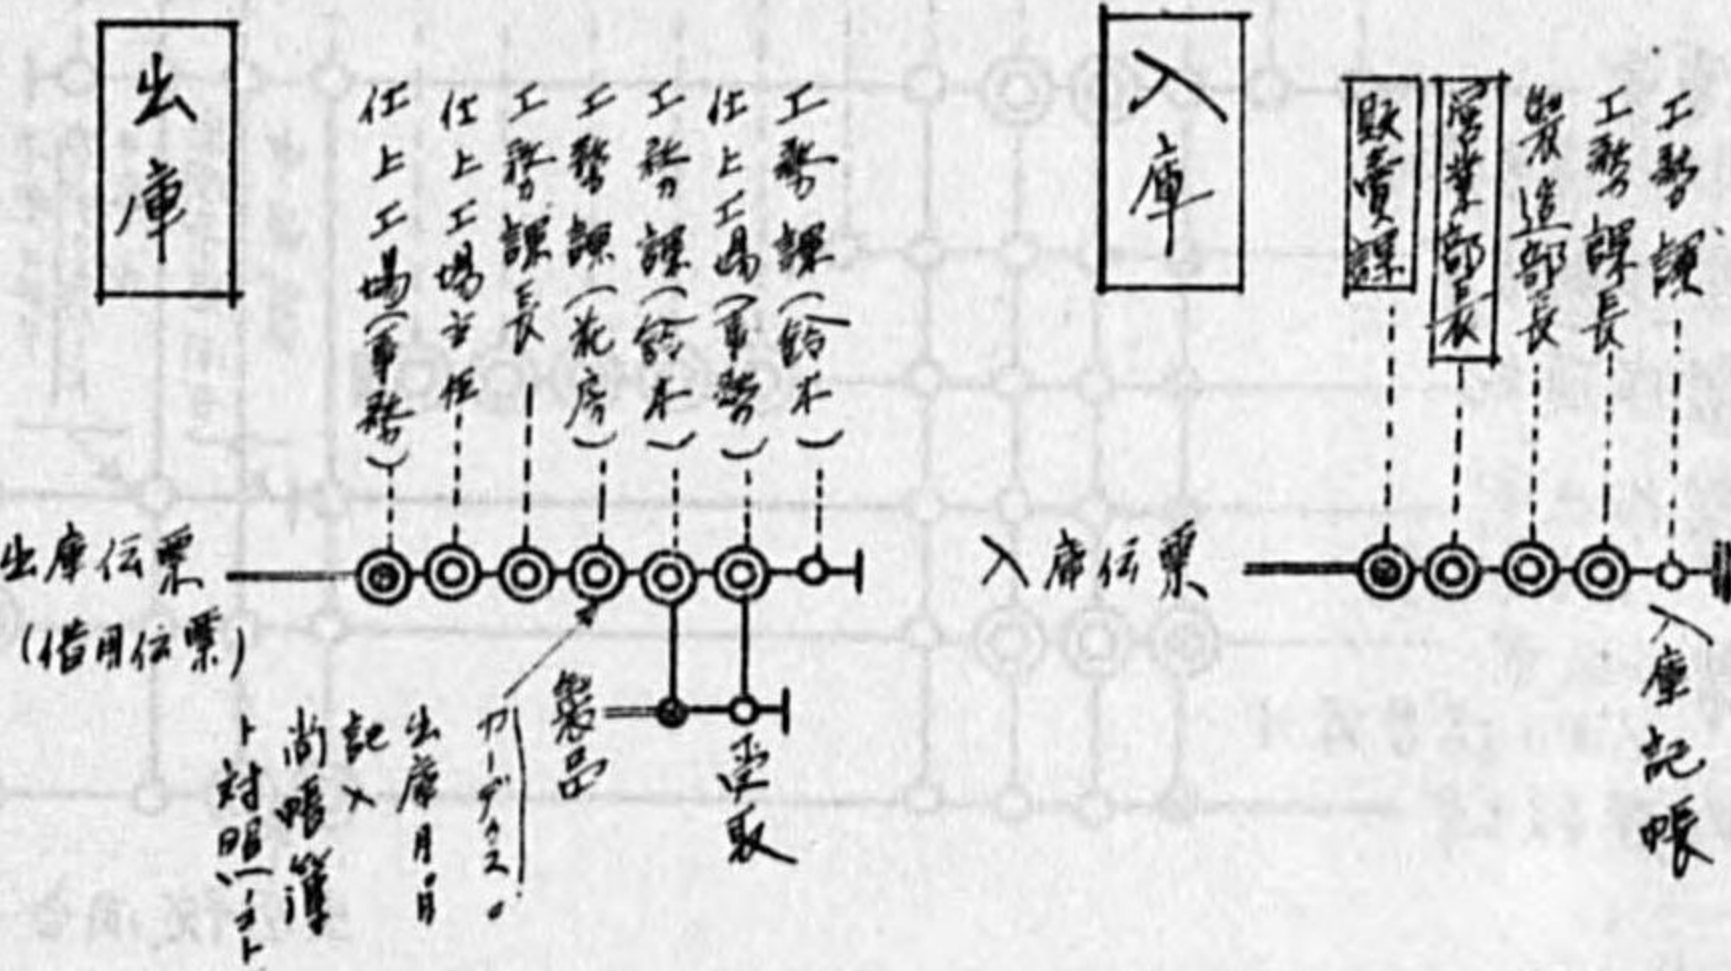 出庫
仕上工場(事務)
仕上工場主任
工務課長
工務課(花房)
工務課(鈴木)
仕上工場(事務)
工務課(鈴木)
出庫伝票
(借用伝票)
製品
受取
カーデクス
出庫月日
記入
尚帳簿
ト対照ノコト
入庫
販賣課
営業部長
製造部長
工務課長
工務課
入庫伝票
入庫記帳